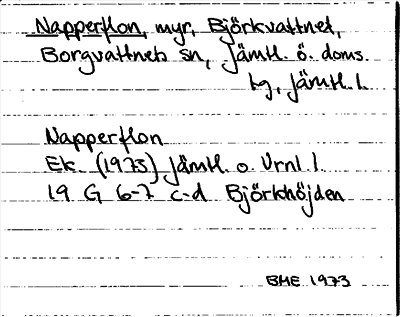 Napperflon, myr, Björkvattnet,
Borgvattnets sn, Jämtl. ö. doms.
tg, Jämtl. l.
Napperflon
Ek. (1973) Jämtl. o Vrnl l.
19 G 6-7 c-d Björkhöjden
BME 1973